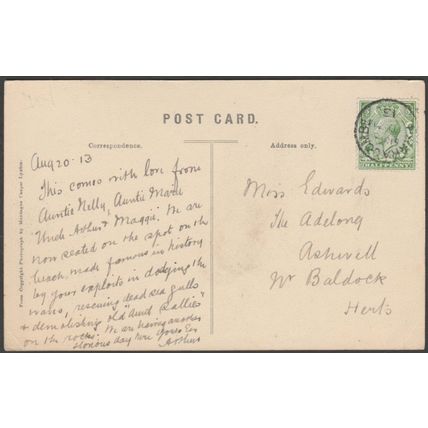 POST CARD.
Correspondence.
Address only.
Aug 20. 13
This comes with love from
Auntie Nelly, Auntie Marie
Uncle Arthur & Maggie. We are
now seated on the spot on the
beach made famous in history
by your exploits in dodging the
waves, rescuing dead sea gulls
& demolishing old "Aunt Sallies"
on the rocks. We are having another
glorious day here. Yours Ever
Arthur
Miss Edwards
The Adelong
Ashwell
Nr Baldock
Herts
HALFPENNY
From Copyright Photograph by Montague Cooper